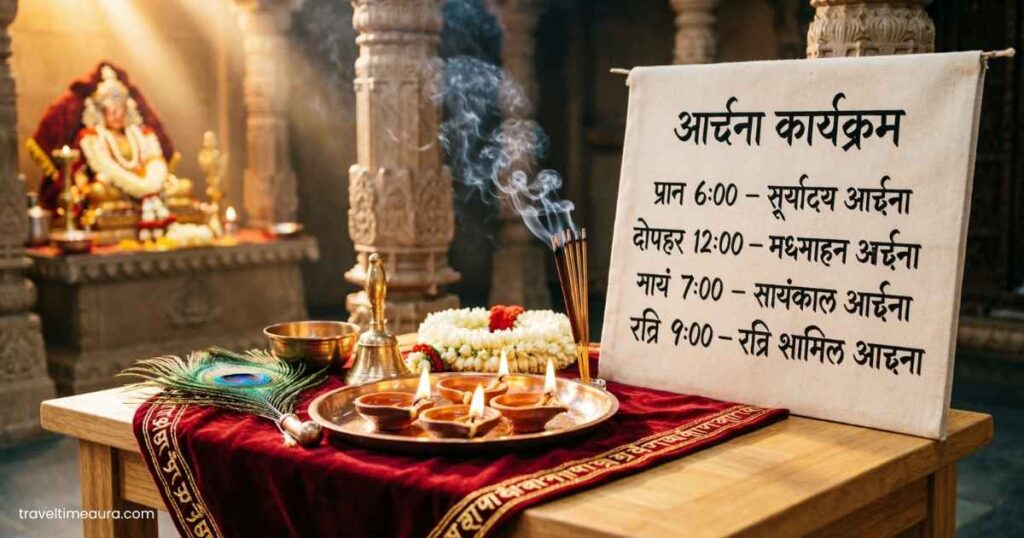 आर्चना कार्यक्रम
प्रान 6:00 – सूर्यादय आर्चना
दोपहर 12:00 – मध्माहन अर्चना
मायं 7:00 – सायंकाल आर्चना
रत्रि 9:00 – रत्रि शामिल आचना
traveltimeaura.com